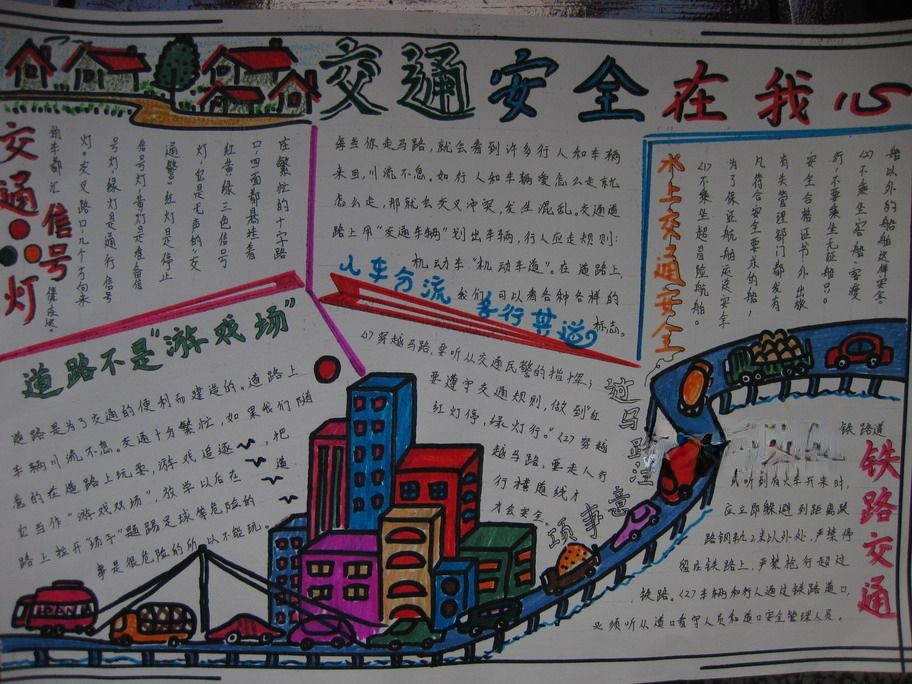 交通安全在我心
交通信号灯
在繁忙的十字路
口,四面都悬挂着
红、黄、绿三色信号
灯,它是无声的"交
通警"。红灯是停止
信号灯,黄灯是准备信
号灯,绿灯是通行信号
灯。交叉路口,几个方向来
的车都汇
每当你走马路,就会看到许多行人和车辆
来回,川流不息。如行人和车辆爱怎么走就
怎么走,那就会交叉冲突,发生混乱,交通道
路上用"交通车辆"划出车辆,行人应走规则:
机动车"机动车道"。在道路上
我们可以看各种各样的
标志。
人车分流
各行其道
水上交通安全
(1)不乘坐超冒险航船。
为了保证航船运送安全
凡符合安全要求的船,
有关管理部门都发有
安全合格证书外出旅
行,不要乘坐无证船只。
(2)不乘坐客船、客渡
船以外的船舶这样安全。
道路不是"游戏场"
道路是为了交通的便利而建造的。道路上
车辆川流不息。交通十分繁忙,如果我们随
意的在道路上玩耍,游戏追逐,把
它当作"游戏玩场",放学以后在道
路上拉开"场子"踢踢足球等危险的
事是很危险的所以不能玩。
过马路注意事项
(1)穿越马路,要听从交通民警的指挥;
要遵守交通规则,做到"红
红灯停,绿灯行。"(2)穿越
越马路,要走人行
行横道线才
才会安全。
铁路交通
铁路道
或听到有火车开来时,
应立即躲避到距离铁
路钢轨2米以外处,严禁停
留在铁路上,严禁抢行超过
铁路。(2)车辆和行人通过铁路道口,
必须听从道口看守人员和道口安全管理人员。